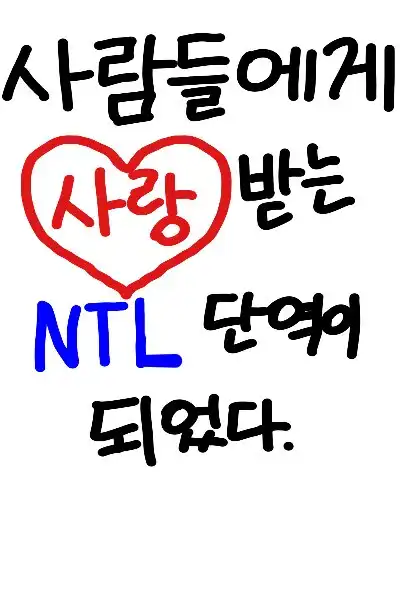 사람들에게
사랑 받는
NTL 단역이
되었다.